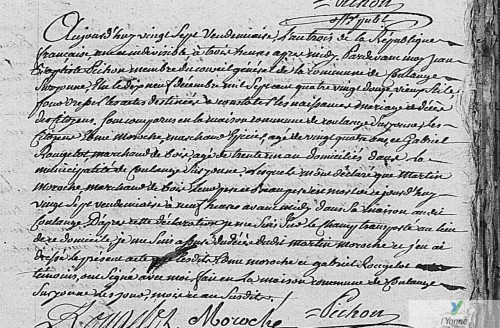 Pichon
off. publ.
Aujourd'huy vingt Sept Vendemiaire, l'an trois de la Republique
francaise une et indivisible, a trois heures apres midy, Pardevant moy Jean
Baptiste Pichon membre du conseil général de la Commune de Coulange
Sur yonne Elu le dix neuf décembre mil Sept cent quatre vingt douze vieux Stile
pour les actes destinés a constater les naissances mariage et décés
des citoyens, Sont comparus en la maison commune de Coulange Sur yonne Les
Citoyens Moroche, marchand Epicié, agé de vingt quatre ans et Gabriel
Rougelot, marchand de bois, agé de trente un an domiciliés dans la
municipalité de Coulange Sur yonne, Lesquels m'ont déclaré que Martin
Moroche marchand de bois est mort ce jourd'huy
vingt Sept vendemiaire a neuf heures avant midy dans Sa maison audit
Coulange D'après cette déclaration je me Suis Sur le Champ transporté au lieu
de ce domicile, je me Suis assuré du décés dudit martin moroche et j'en ai
dressé le présent acte que Lesdits moroche et gabriel Rougelot
témoins ont Signé avec moi fait en la maison commune de Coulange
Sur yonne Les jour, mois et an Susdits.
Rougelot Moroche Pichon
l'Yonne